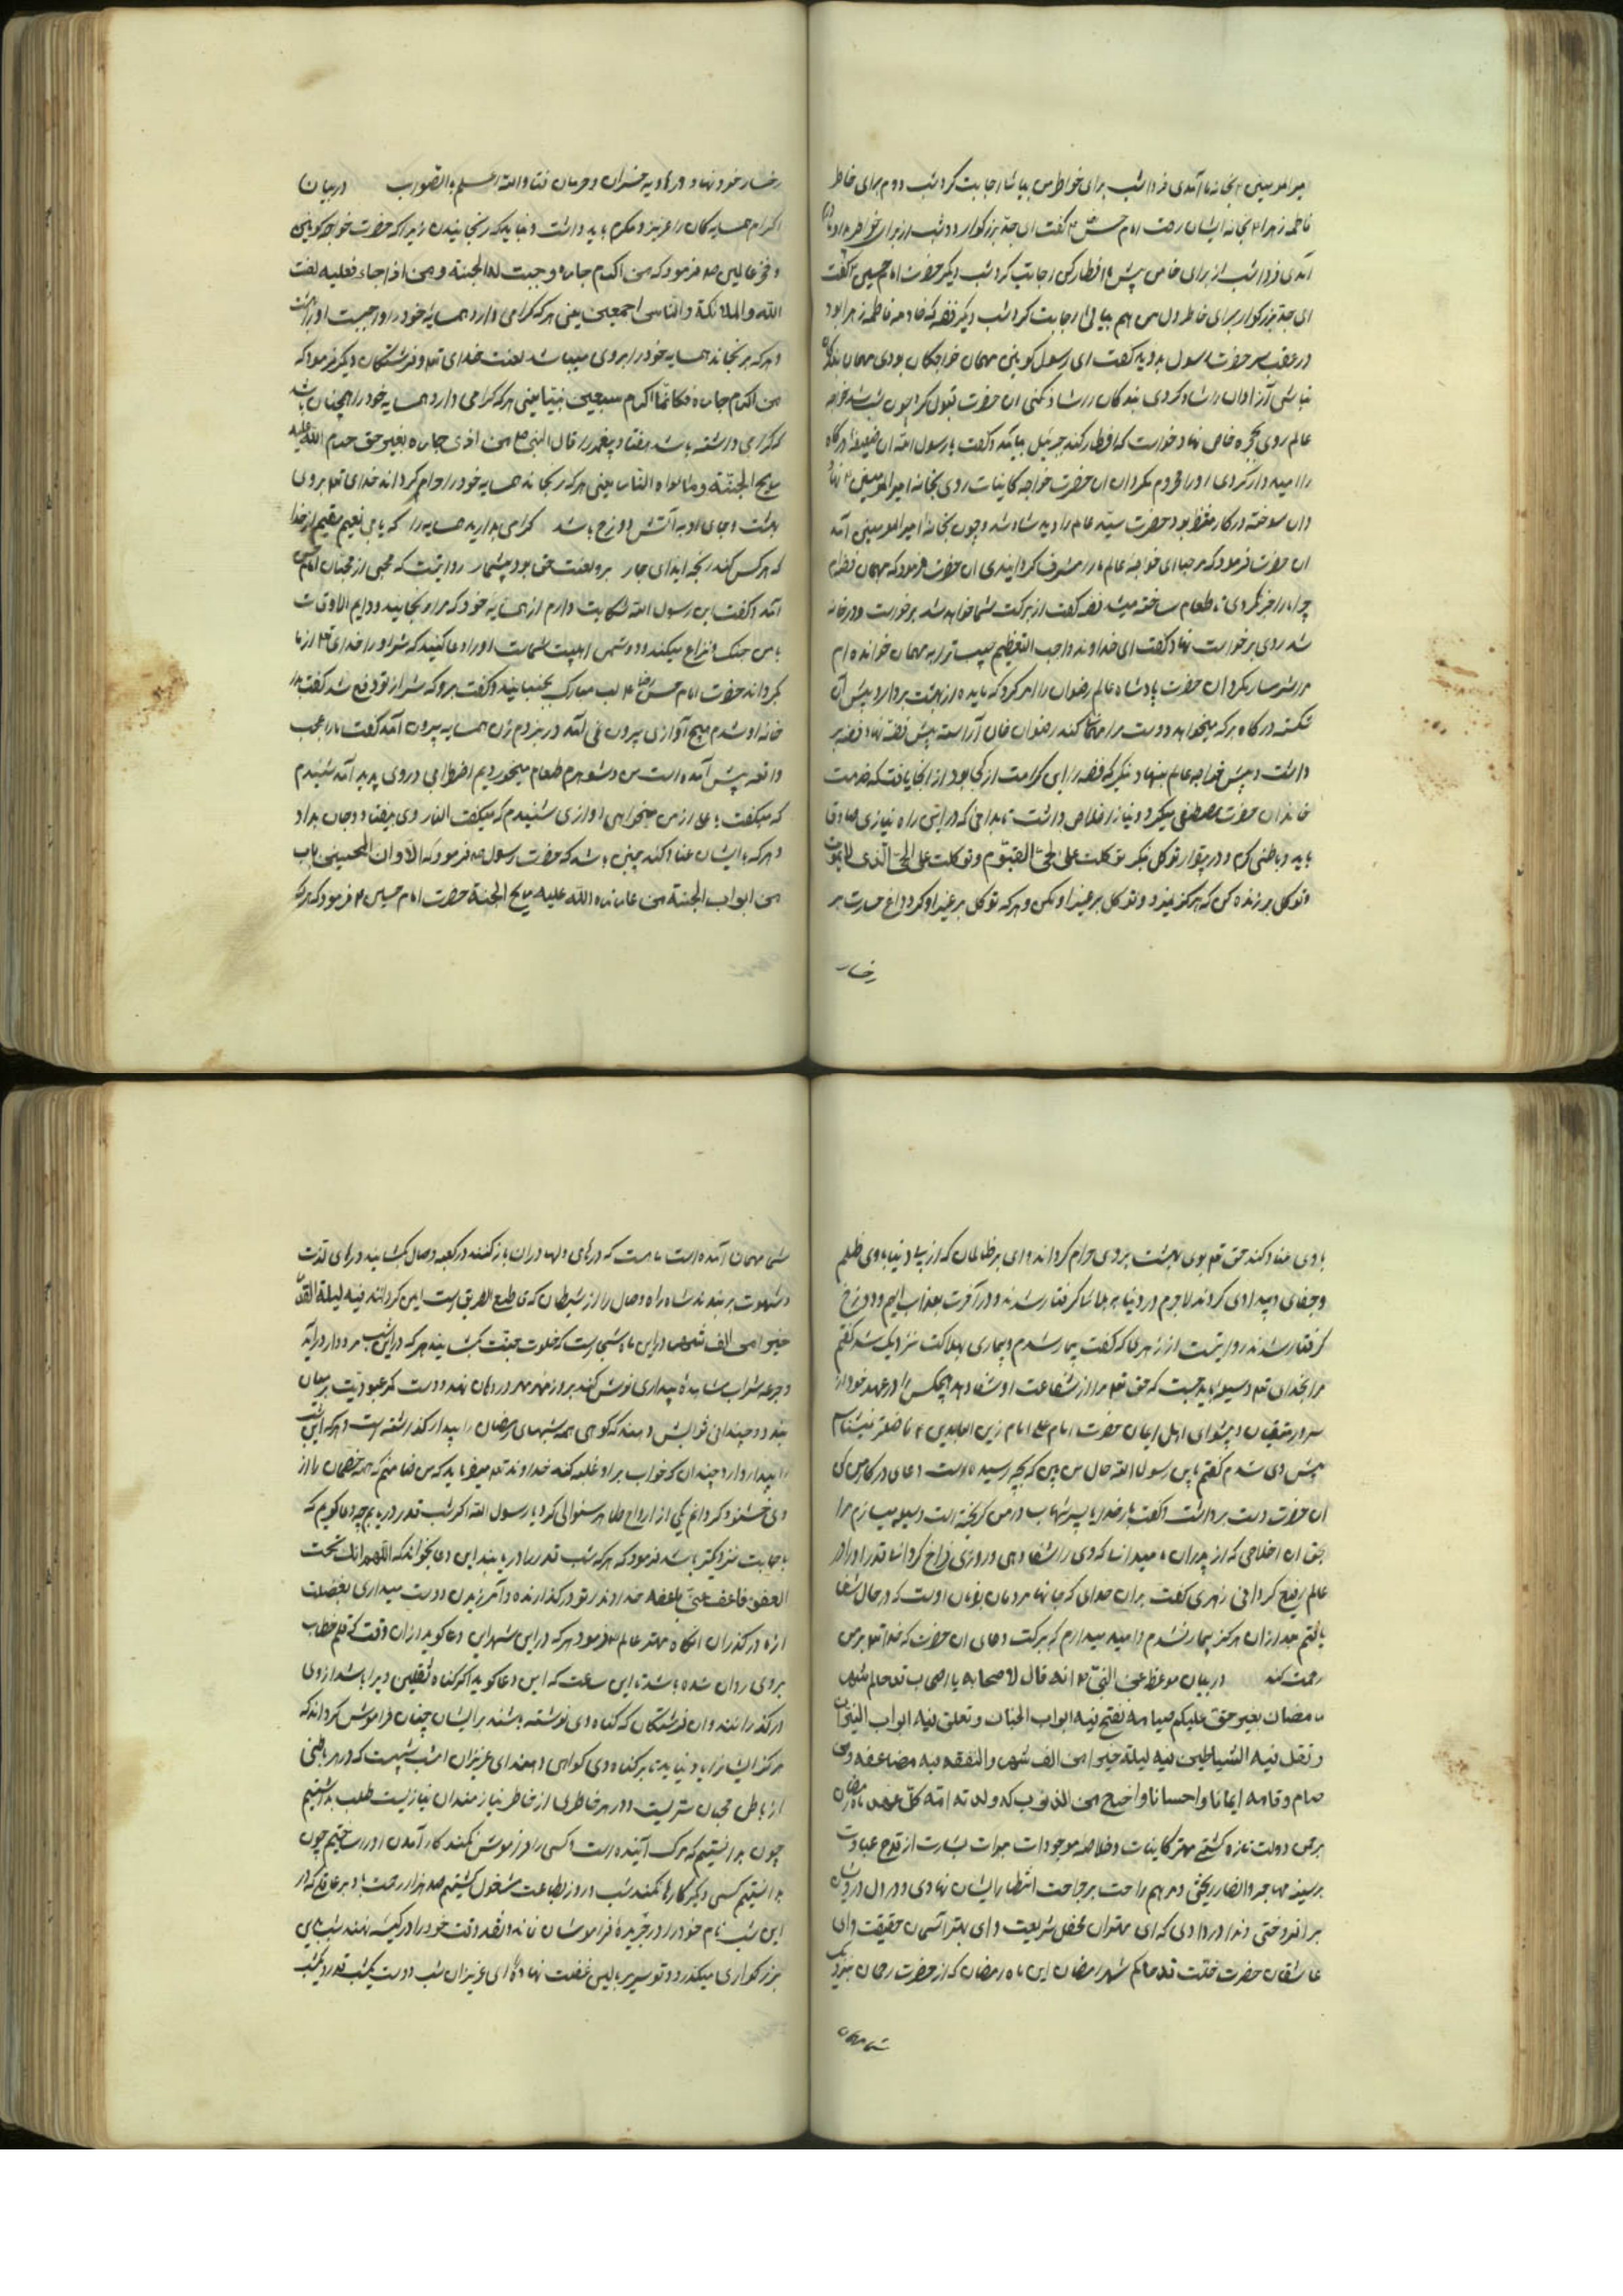 امیرالمومنین بخانهٔ ما آمدی فردا شب برای خواطر من بیا شاه اجابت کرد شب دوم برای خاطر
فاطمه زهرا بخانهٔ ایشان رفت امام حسن گفت ای جد بزرگوار دو شب از برای خواطر
آمدی فردا شب از برای خاطر من پیش ما افطار کن اجابت کرد شب دیگر حضرت امام حسین گفت
ای جد بزرگوار برای خاطر دل من هم بیائی اجابت کرد شب دیگر فضه که خادمه فاطمه زهرا بود
در عقب سر حضرت رسول بدوید گفت ای رسول کونین مهمان خواجگان بودی مهمان
نباشی آزادان را شاد کردی بندگان را شاد کنی ان حضرت قبول کرد چون شب شد خواجه
عالم روی بحجره خاص نهاد خواست که افطار کند جبرئیل بیامد و گفت یا رسول الله ان ضعیفه درگاه
را امیدوار کردی او را محروم مگردان ان حضرت خواجه کاینات روی بخانه امیرالمومنین نهاد
دان سوخته در کار منتظر بود حضرت سید عالم را دید شاد شد و چون بخانه امیرالمومنین آمد
ان حضرت فرمود که مرحبا ای خواجه عالم ما را مشرف گردانیدی ان حضرت فرمود که مهمان فضه‌ام
چرا ما را خبر نکردی تا طعام ساخته میشد فضه گفت از برکت شما خواهد شد برخواست و در خانه
شد روی بر خواست نهاد گفت ای خداوند واجب التعظیم حبیب ترا به مهمان خوانده ام
مرا شرمسار مگردان حضرت پادشاه عالم رضوان را امر کرد که مایده از بهشت بردار و پیش آن
شکسته درگاه بر که میخواهد دوست مرا مهمان کند رضوان خوان آراسته پیش فضه نهاد فضه بر
داشت و پیش خواجه عالم بنهاد بنگر که فضه را این کرامت از کجا بود از انجا یافت که خدمت
خاندان حضرت مصطفی میکرد و نیاز اخلاص داشت تا بدانی که در این راه نیازی صادق
باید و باطنی کرم و در پرتو از توکل بنگر توکلت علی الحی القیوم و توکلت علی الحی الذی لا یموت
و توکل بر زنده کن که هرگز نمیرد و توکل بر غیر او مکن و هر که توکل بر غیر او کرد داغ حسرت بر
رخسار
رخسار خود نهاد و در هاویه خسران و حرمان فتاد والله اعلم بالصواب در بیان
اکرام همسایه کان را عزیز و مکرم باید داشت و نباید که رنجانیدن زیرا که حضرت خواجه کونین
و فخر عالمین ص فرمود که من اکرم جاره وجبت له الجنة و من اذا جاره فعلیه لعنت
الله والملائکة والناس اجمعین یعنی هر که گرامی دارد همسایه خود را واجبست او را بهشت
و هر که برنجاند همسایه خود را بر وی میباشد لعنت خدای تع و فرشتگان دیگر فرمود که
من اکرم جاره فکانما اکرم سبعین نبیا یعنی هر که گرامی دارد همسایه خود را همچنان باشد
که گرامی داشته باشد هفتاد پیغمبر را قال النبی ص من اذی جاره بغیر حق حرم الله علیه
ریح الجنة و ماواه النار یعنی هر که برنجاند همسایه خود را حرام گرداند خدای تع بر وی
بهشت و جای او به آتش دوزخ باشد گرامی بدارید همسایه را که یابی نعیم مقیم از خدا
که هر کس کند رنجه ایذای جار برو لعنت حق بود بیشمار روایتست که محبی از محبان امام حسن
آمد و گفت یابن رسول الله شکایت دارم از همسایه خود که مرا برنجانید و دایم الاوقات
با من جنک و نزاع میکند و دشمن اهلبیت شماست او را دعا کنید که شر او را خدای تع از ما
بگرداند حضرت امام حسن رضا لب مبارک بجنبانید و گفت برو که شر از تو دفع شد گفت بدر
خانه او شدم هیچ آوازی بیرون نمی آمد در بزدم زن همسایه بیرون آمد گفت ما را عجب
واقعه پیش آمده است من و شوهرم طعام میخوردیم اضطرابی در وی پدید آمد شنیدم
که میگفت یا علی از من چه میخواهی اوازی شنیدم که میگفت النار وی بیفتاد و جان بداد
و هر که با ایشان عناد کند چنین باشد که حضرت رسول ص فرمود که الا و ان الحسین باب
من ابواب الجنة من عانده الله علیه ریح الجنة حضرت امام حسین فرمود که هر که
با وی عناد کند حق تع بوی بهشت بر وی حرام گرداند وای بر ظالمان که از پی دنیا با وی ظلم
و جفای و بیدادی کردند لاجرم در دنیا به بلاها گرفتار شدند و در آخرت بعذاب الیم و دوزخ
گرفتار شدند روایتست از زهری که گفت بیمار شدم و بیماری بهلاکت نزدیک شد گفتم
مرا بخدای تع وسیله باید جست که حق تع مرا از شفاعت او شفا دهد هیچکس را در عهد خود از
سرور متقیان و پیشوای اهل ایمان حضرت امام علی امام زین العابدین ع فاضلتر نمیشناسم
پیش وی شدم گفتم یابن رسول الله حال من ببین که بچه رسیده است دعای در کار من کن
ان حضرت دست برداشت و گفت بار خدایا پسر شهاب در من گریخته است وسیله میسازم مرا
بحق ان اخلاصی که از پدران ما میدانی که وی را شفا دهی و روزی فراخ گردانی و قدر او را در
عالم رفیع گردانی زهری گفت بدان خدای که جانها مردمان بفرمان اوست که در حال شفا
یافتم بعد ازان هرگز بیمار نشدم و امید میدارم که ببرکت دعای ان حضرت که خدا تع بر من
رحمت کند در بیان موعظ عن النبی ص انه قال لاصحابه یا اصحاب قد جاءکم شهر
رمضان بغیر حق علیکم صیامه تفتح فیه ابواب الجنان و تغلق فیه ابواب النیران
و تغل فیه الشیاطین فیه لیلة خیرا من الف شهر والنفقه فیه مضاعفه و من
صام و قامه ایمانا و احسانا و اخرج من الذنوب که ولدته امه
برحمن دولت تازه گشتی مهتر کاینات و خلاصه موجودات بشارت از قدح عبادت
بر سینه مهاجر و انصار ریختی و مرهم راحت بر جراحت انتظار ایشان نهادی و در دل درویشان
برافروختی و ندا در دادی که ای مهتران محفل شریعت و ای بهتر حقیقت و ای
عاشقان حضرت خلت قد جاءکم شهر رمضان این ماه رمضان که از حضرت رحمان بنزدیک
شما مهمان
شما مهمان آمده است ماهست که درهای دلها دران باز کنند در کعبه وصال بگشایند درهای لذت
و شهوت بر بندند شاه راه وصال را از شیطان که قطیع الطریق است ایمن گردانند فیه لیلة القدر
خیرا من الف شهر در این ماه شبی است که خلوت حقیقت بگشایند هر که در این شب مردوار درآید
و جرعه شراب مشاهده بیداری نوش کند بروز مهر مهر در دهان نهد و دست کمر عبودیت بر میان
بندد و چندانی ثوابش دهند که گوئی همه شبهای رمضان را بیدار گذراشته است و هر که این شب
را بیدار دارد چندان که خواب بر او غلبه کند خداوند تع میفرماید که من ضامنم که همه خصمان را از
وی خشنود گردانم یکی از ارواح طاهر سئوالی کرد یا رسول الله اگر شب قدر دریابم چه دعا گویم که
باجابت نزدیکتر باشد فرمود که هر که شب قدر را دریابند این دعا بخواند که اللهم انک تحب
العفو فاعف عنی بلطفه خداوندا تو در گذارنده و آمرزیدن دوست میداری بفضلت
از ما در گذران انگاه مهتر عالم ص فرمود هر که در این شب این دعا گوید از ان وقت که قلم خطاب
بر وی روان شده باشد تا این ساعت که این دعا گوید اگر گناه ثقلین ویرا باشد از وی
در گذرانند و ان فرشتگان که گناه وی نوشته باشند بر ایشان چنان فراموش گرداند که
هرگز ایشانرا یاد نیاید تا بر گناه وی گواهی دهند ای عزیزان امشب شبیست که در هر باطنی
از باطن محبان سریست و در هر خاطری از خاطر نیازمندان نیازیست طلب بدانستیم
چون بدانستیم که مرک آینده است کسی را فراموش نمیکند کار آمدن او را ساختیم چون
بدانستیم کسی دیگر کار ما نمیکند شب و روز بطاعت مشغول گشتیم صد هزار رحمت باد بر عاقلی که در
این شب نام خود را در جریده فراموشان نماند و نقد وقت خود را در کیسه نهند شب بدین
بزرگواری میگذرد و تو سر بر بالین غفلت نهاده ای عزیزان شب دوست یکشب قدر و یکشب